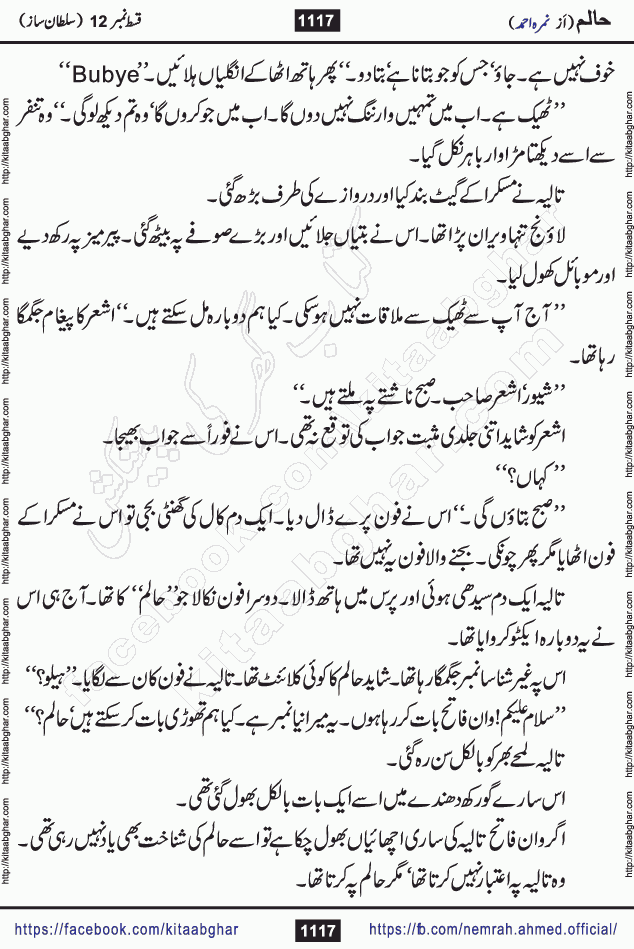 حالم (از نمرہ احمد)
1117
قسط نمبر 12 (سلطان ساز)
خوف نہیں ہے۔ جاؤ‘ جس کو جو بتانا ہے‘ بتا دو۔‘‘ پھر ہاتھ اٹھا کے انگلیاں ہلائیں۔ ’’Bubye‘‘
’’ٹھیک ہے۔ اب میں تمہیں وارننگ نہیں دوں گا۔ اب میں جو کروں گا‘ وہ تم دیکھ لو گی۔‘‘ وہ تنفر
سے اسے دیکھتا مڑا اوار باہر نکل گیا۔
تالیہ نے مسکرا کے گیٹ بند کیا اور دروازے کی طرف بڑھ گئی۔
لاؤنج تنہا ویران پڑا تھا۔ اس نے بتیاں جلائیں اور بڑے صوفے پہ بیٹھ گئی۔ پیر میز پہ رکھ دیے
اور موبائل کھول لیا۔
’’آج آپ سے ٹھیک سے ملاقات نہیں ہو سکی۔ کیا ہم دوبارہ مل سکتے ہیں۔‘‘ اشعر کا پیغام جگمگا
رہا تھا۔
’’شیور‘ اشعر صاحب۔ صبح ناشتے پہ ملتے ہیں۔‘‘
اشعر کو شاید اتنی جلدی مثبت جواب کی توقع نہ تھی۔ اس نے فوراً سے جواب بھیجا۔
’’کہاں؟‘‘
’’صبح بتاؤں گی۔‘‘ اس نے فون پرے ڈال دیا۔ ایک دم کال کی گھنٹی بجی تو اس نے مسکرا کے
فون اٹھایا مگر پھر چونکی۔ بجنے والا فون یہ نہیں تھا۔
تالیہ ایک دم سیدھی ہوئی اور پرس میں ہاتھ ڈالا۔ دوسرا فون نکالا جو ’’حالم‘‘ کا تھا۔ آج ہی اس
نے یہ دوبارہ ایکٹو کروایا تھا۔
اس پہ غیر شناسا نمبر جگمگا رہا تھا۔ شاید حالم کا کوئی کلائنٹ تھا۔ تالیہ نے فون کان سے لگایا۔ ’’ہیلو؟‘‘
’’سلام علیکم! وان فاتح بات کر رہا ہوں۔ یہ میرا نیا نمبر ہے۔ کیا ہم تھوڑی بات کر سکتے ہیں‘ حالم؟‘‘
تالیہ لمحے بھر کو بالکل سن رہ گئی۔
اس سارے گورکھ دھندے میں اسے ایک بات بالکل بھول گئی تھی۔
اگر وان فاتح تالیہ کی ساری اچھائیاں بھول چکا ہے تو اسے حالم کی شناخت بھی یاد نہیں رہی تھی۔
وہ تالیہ پہ اعتبار نہیں کرتا تھا‘ مگر حالم پہ کرتا تھا۔
http://kitaabghar.com http://kitaabghar.com http://kitaabghar.com http://kitaabghar.com http://kitaabghar.com http://kitaabghar.com http://kitaabghar.com http://kitaabghar.com
http://kitaabghar.com http://kitaabghar.com http://kitaabghar.com http://kitaabghar.com http://kitaabghar.com http://kitaabghar.com http://kitaabghar.com http://kitaabghar.com
کتاب گھر کی پیشکش
facebook.com/kitaabghar
kitaabghar.com
https://facebook.com/kitaabghar
1117
https://fb.com/nemrah.ahmed.official/